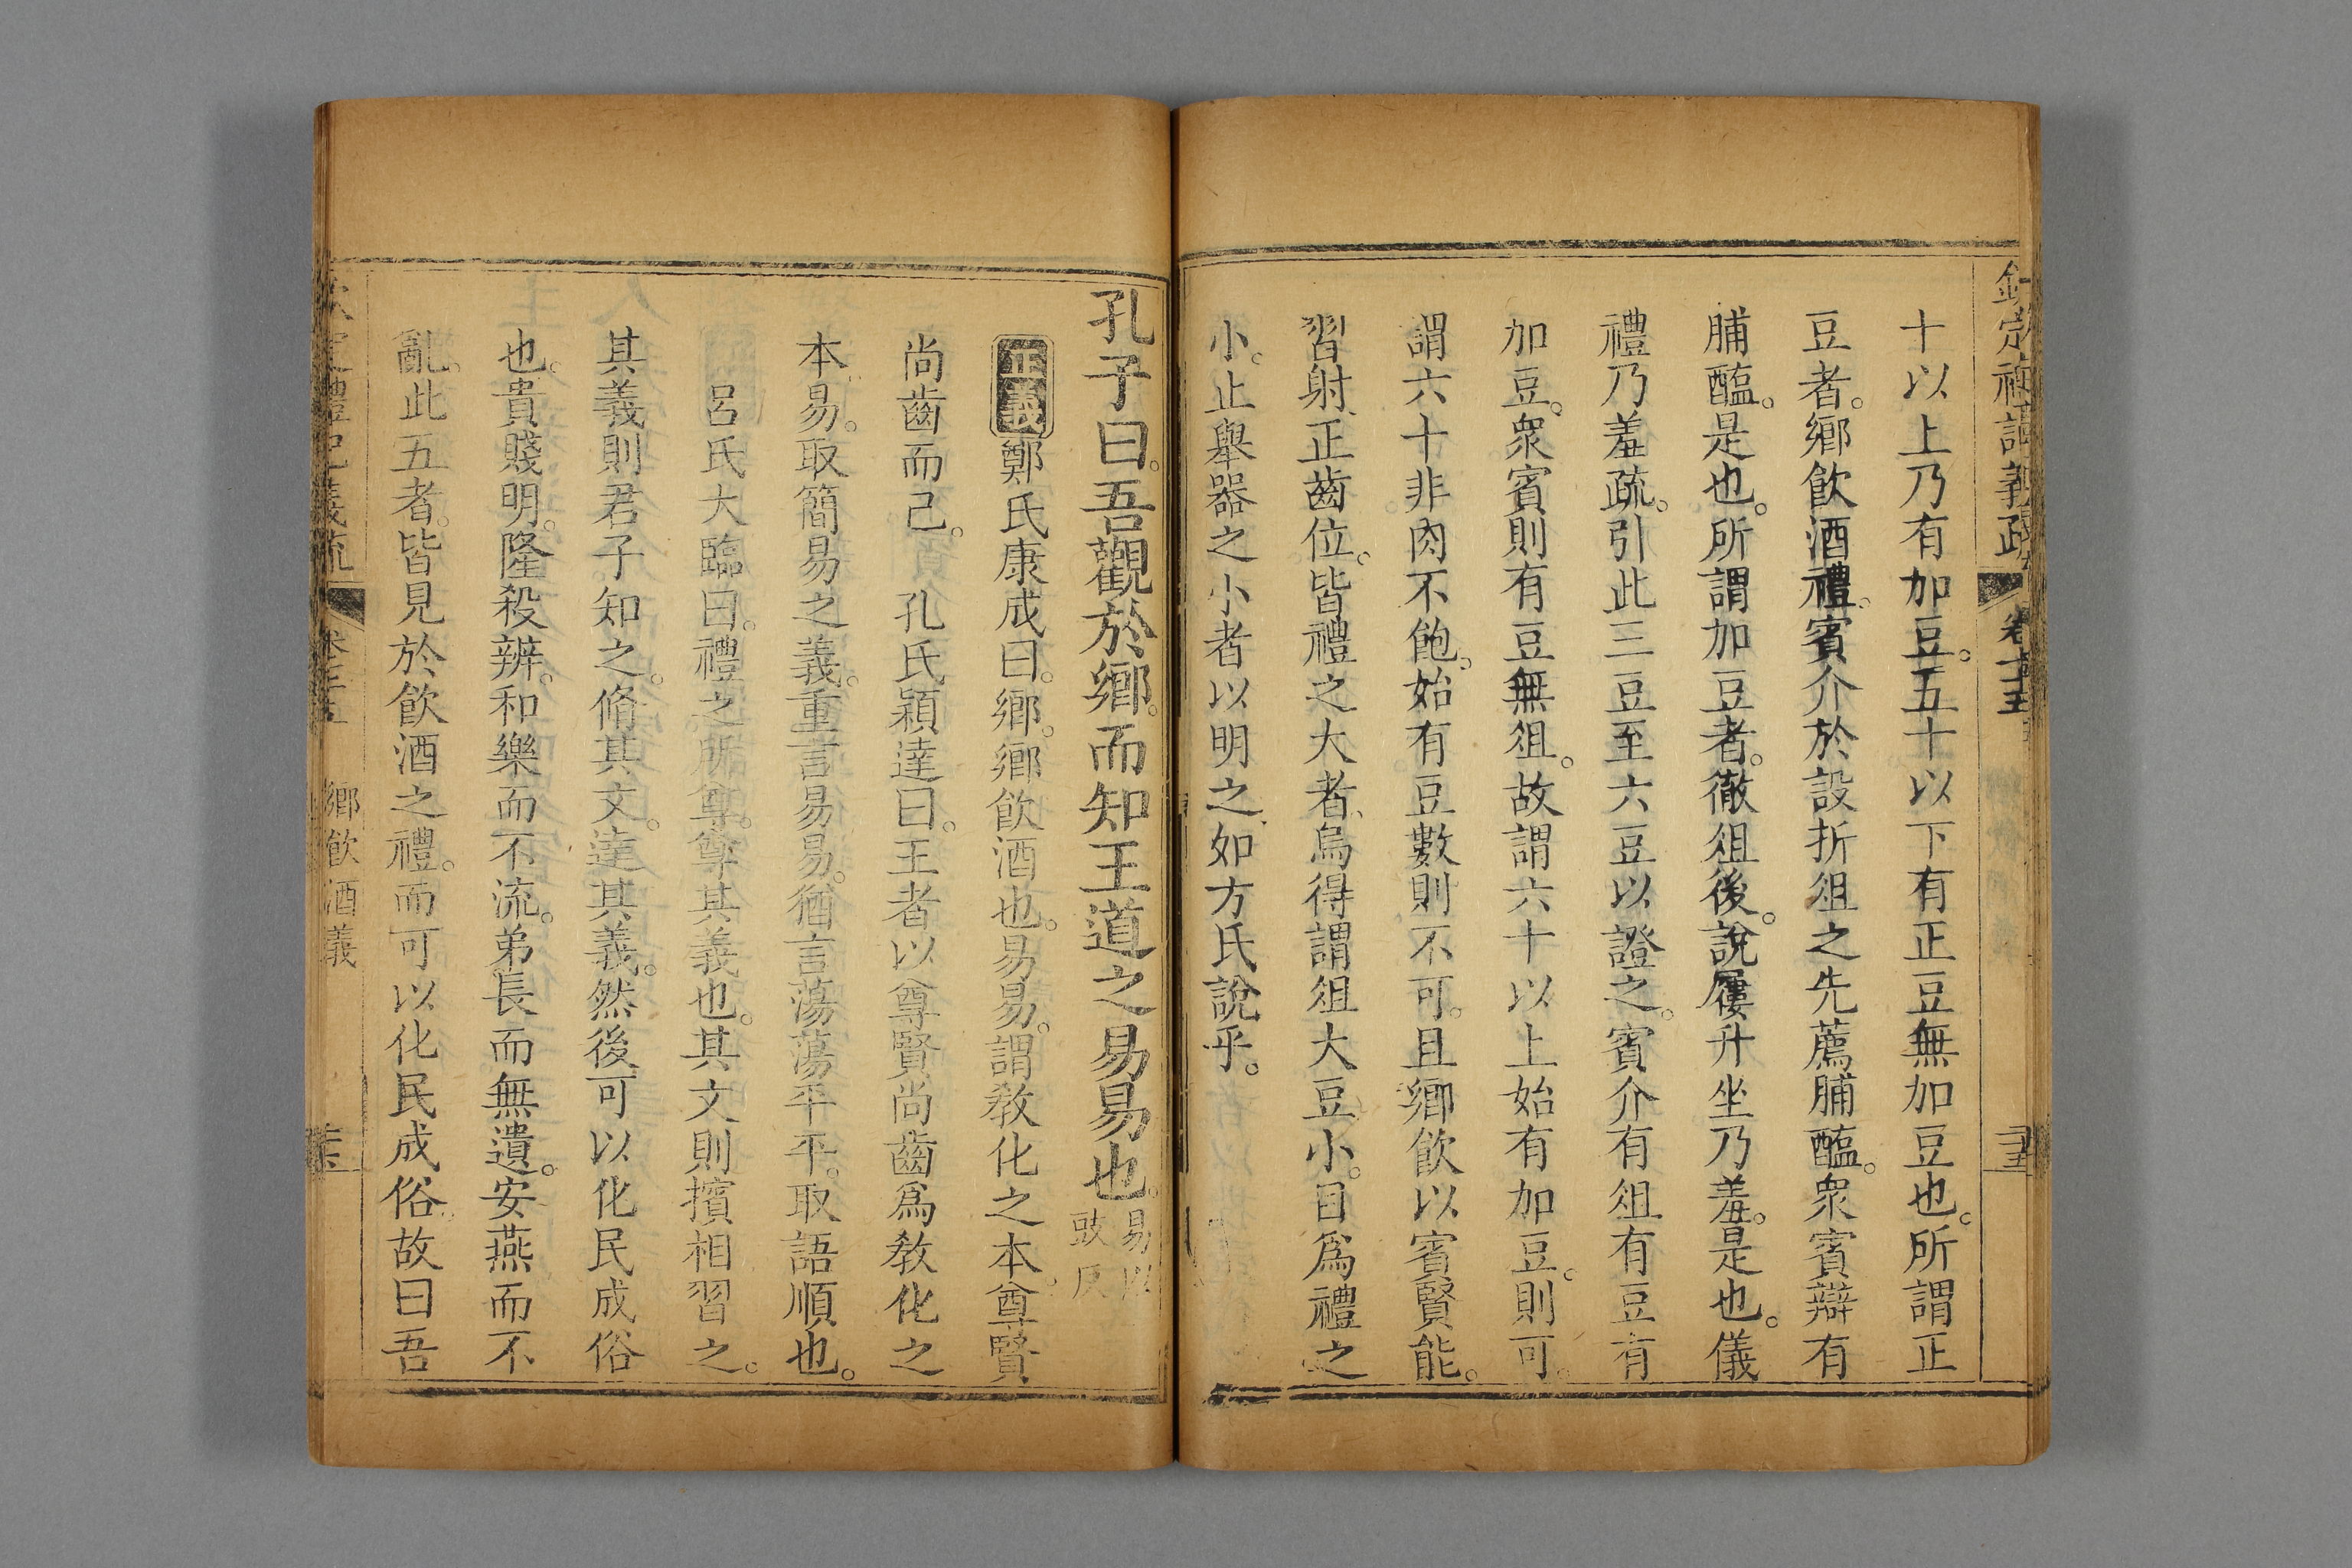 欽定禮記義疏 卷七十五
十以上乃有加豆。五十以下有正豆無加豆也。所謂正
豆者。鄉飲酒禮。賓介於設折俎之先薦脯醢。衆賓辯有
脯醢。是也。所謂加豆者。徹俎後。說屨升坐乃羞。是也。儀
禮乃羞疏。引此三豆至六豆以證之。賓介有俎有豆有
加豆。衆賓則有豆無俎。故謂六十以上始有加豆。則可。
謂六十非肉不飽。始有豆數則不可。且鄉飲以賓賢能。
習射正齒位。皆禮之大者。烏得謂俎大豆小。目爲禮之
小。止舉器之小者以明之。如方氏說乎。
孔子曰。吾觀於鄉。而知王道之易易也。易以豉反
正義鄭氏康成曰。鄉。鄉飲酒也。易易。謂敎化之本。尊賢
尚齒而已。 孔氏穎達曰。王者以尊賢尚齒爲敎化之
本。易。取簡易之義。重言易易。猶言蕩蕩平平。取語順也。
呂氏大臨曰。禮之所尊。尊其義也。其文則擯相習之。
其義則君子知之。脩其文。達其義。然後可以化民成俗
也。貴賤明。隆殺辨。和樂而不流。弟長而無遺。安燕而不
亂。此五者。皆見於飲酒之禮。而可以化民成俗。故曰吾
欽定禮記義疏 卷七十五 鄉飲酒義